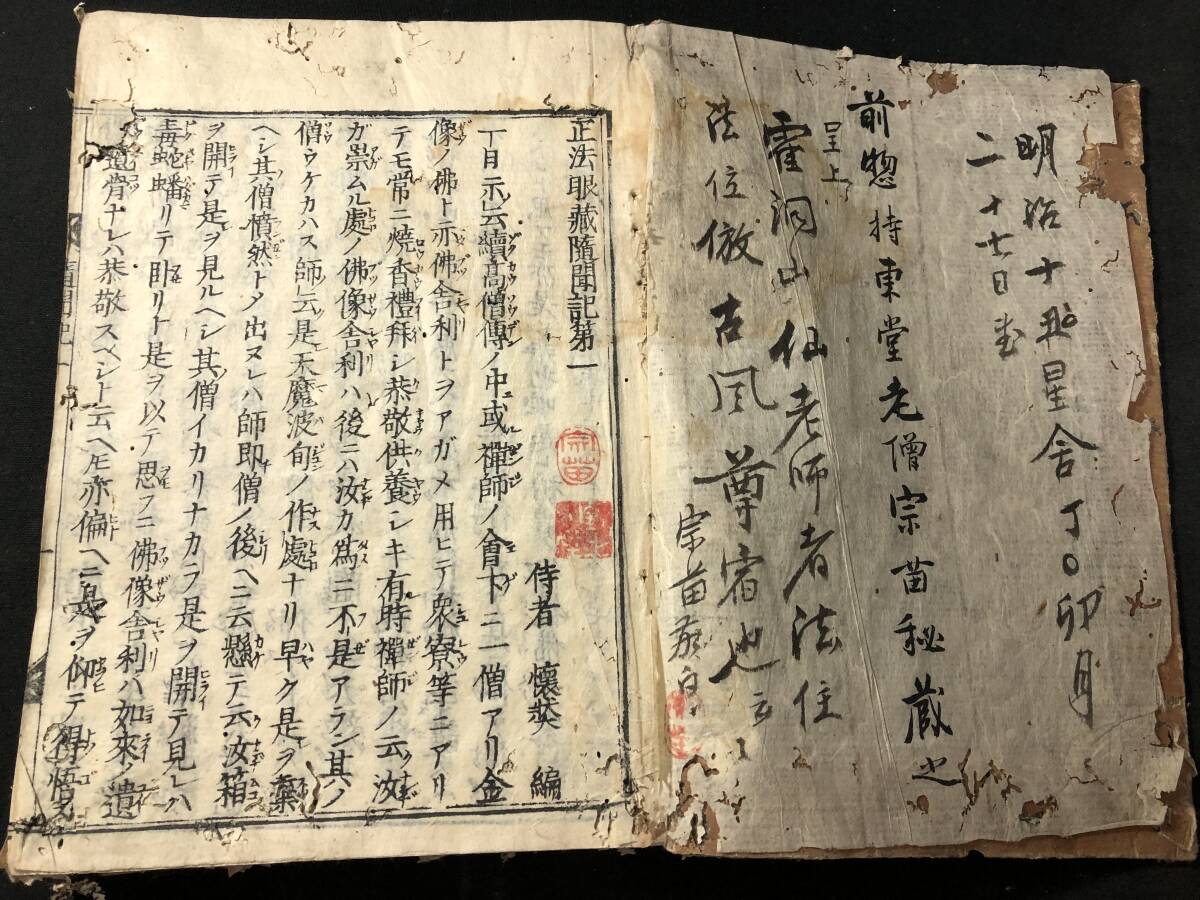 明治十五星舎丁〇卯月
二十七日
前惣持東堂老僧宗苗秘蔵之
呈上
霍洞山仙老師者法住
法位倣古風尊宿也云々
宗苗敬白
正法眼藏隨聞記第一
宗苗
侍者 懷奘 編
一日示云續高僧傳ノ中或禪師ノ會下ニ一僧アリ金
像ノ佛ト亦佛舎利トヲアガメ用ヒテ衆寮等ニアリ
テモ常ニ焼香禮拜シ恭敬供養シキ有時禪師ノ云汝
ガ崇ムル處ノ佛像舎利ハ後ニハ汝カ爲ニ不是アラン其ノ
僧ウケカハス師云是天魔波旬ノ作處ナリ早ク是ヲ棄
ヘシ其僧憤然トメ出ヌレハ師即僧ノ後ヘニ云懸テ云汝箱
ヲ開テ是ヲ見ルヘシ其僧イカリナカラ是ヲ開テ見レハ
毒蛇蟠リテ卧リト是ヲ以テ思フニ佛像舎利ハ如來ノ遺
像遺骨ナレハ恭敬スベシト云ヘ𪜈亦偏ヘニ是ヲ仰テ得悟